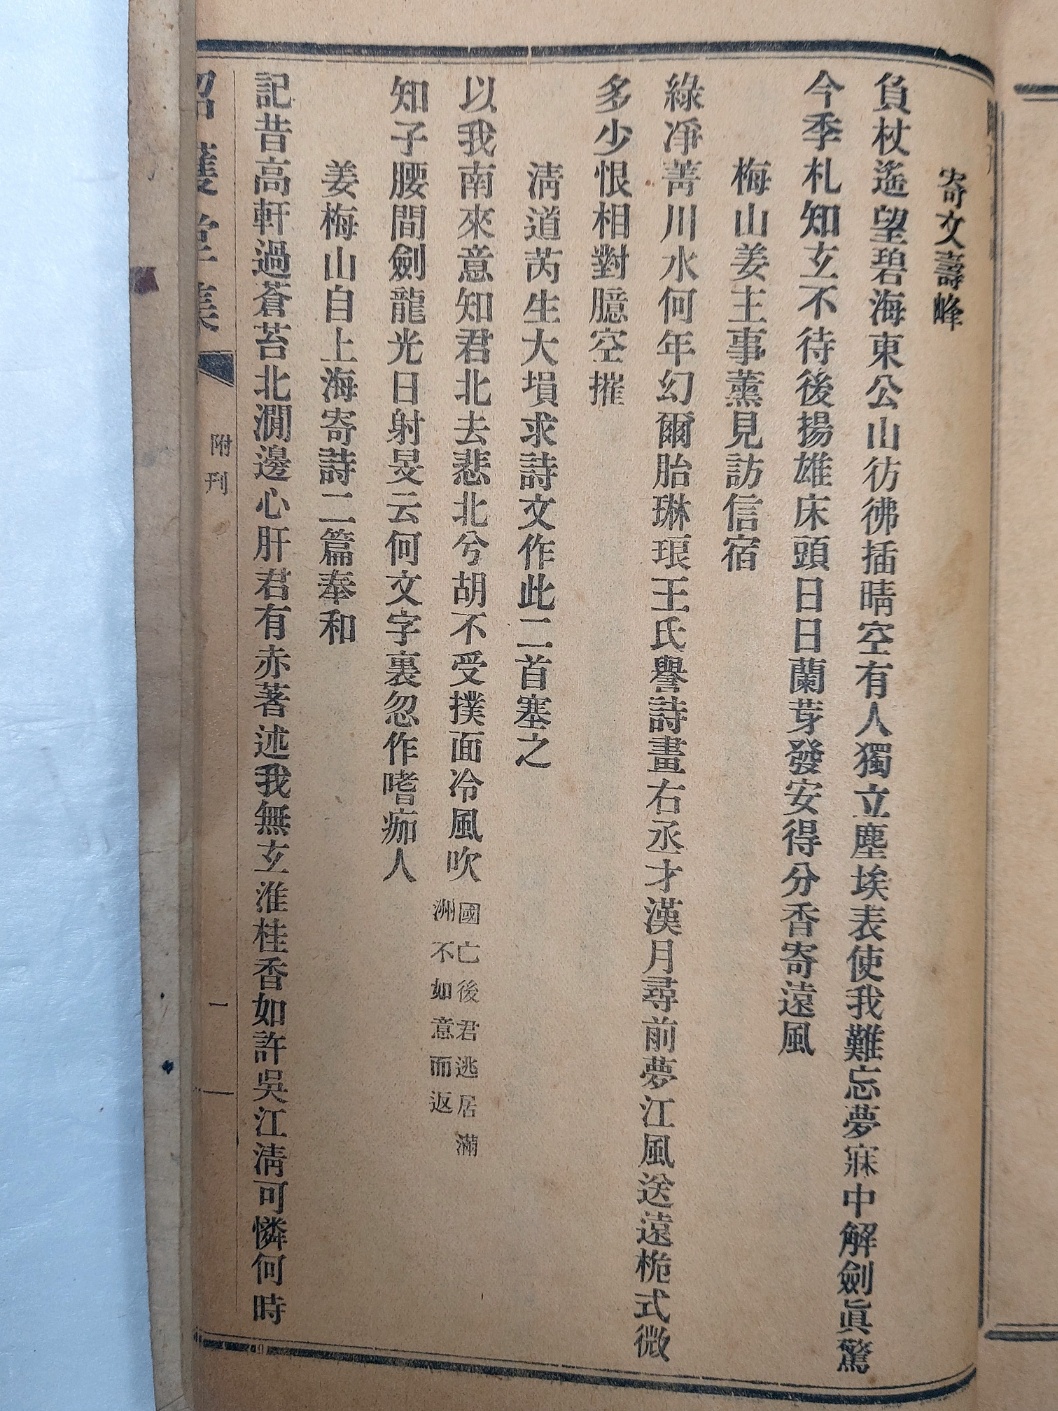 寄文壽峰
負杖遙望碧海東公山彷彿插晴空有人獨立塵埃表使我難忘夢寐中解劍眞驚
今季札知玄不待後揚雄床頭日日蘭芽發安得分香寄遠風
梅山姜主事薰見訪信宿
綠淨菁川水何年幻爾胎琳琅王氏譽詩畫右丞才漢月尋前夢江風送遠桅式微
多少恨相對臆空摧
淸道芮生大塤求詩文作此二首塞之
以我南來意知君北去悲北兮胡不受撲面冷風吹
國亡後君逃居滿
洲不如意而返
知子腰間劍龍光日射旻云何文字裏忽作嗜痂人
姜梅山自上海寄詩二篇奉和
記昔高軒過蒼苔北澗邊心肝君有赤著述我無玄淮桂香如許吳江淸可憐何時
韶護堂集
附刊
一